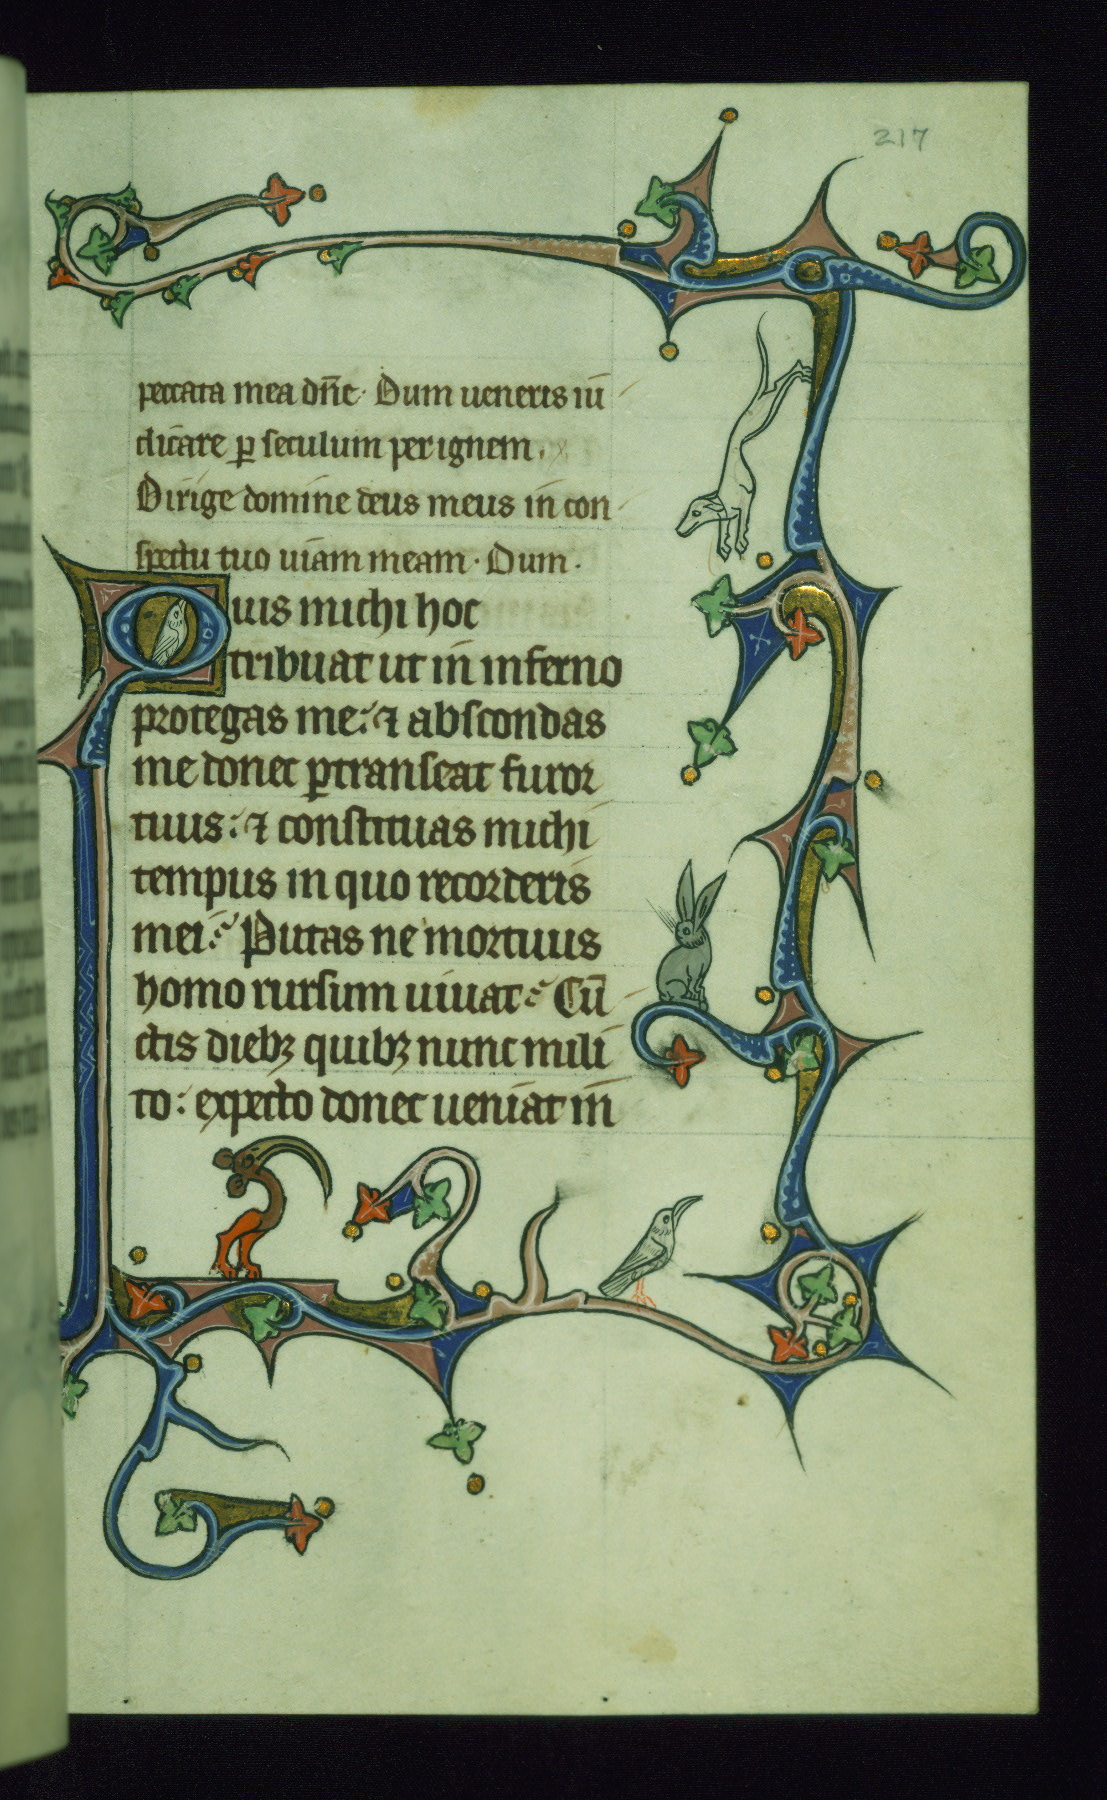 217
peccata mea dñe· Dum ueneris iu
dicare ꝑ seculum per ignem.
Dirige domine deus meus in con
spectu tuo uiam meam· Dum·
Quis michi hoc
tribuat ut in inferno
protegas me: ⁊ abscondas
me donec ꝑtranseat furor
tuus: ⁊ constituas michi
tempus in quo recorderis
mei: Putas ne mortuus
homo rursum uiuat: Cū
ctis diebꝫ quibꝫ nunc mili
to: expecto donec ueniat in